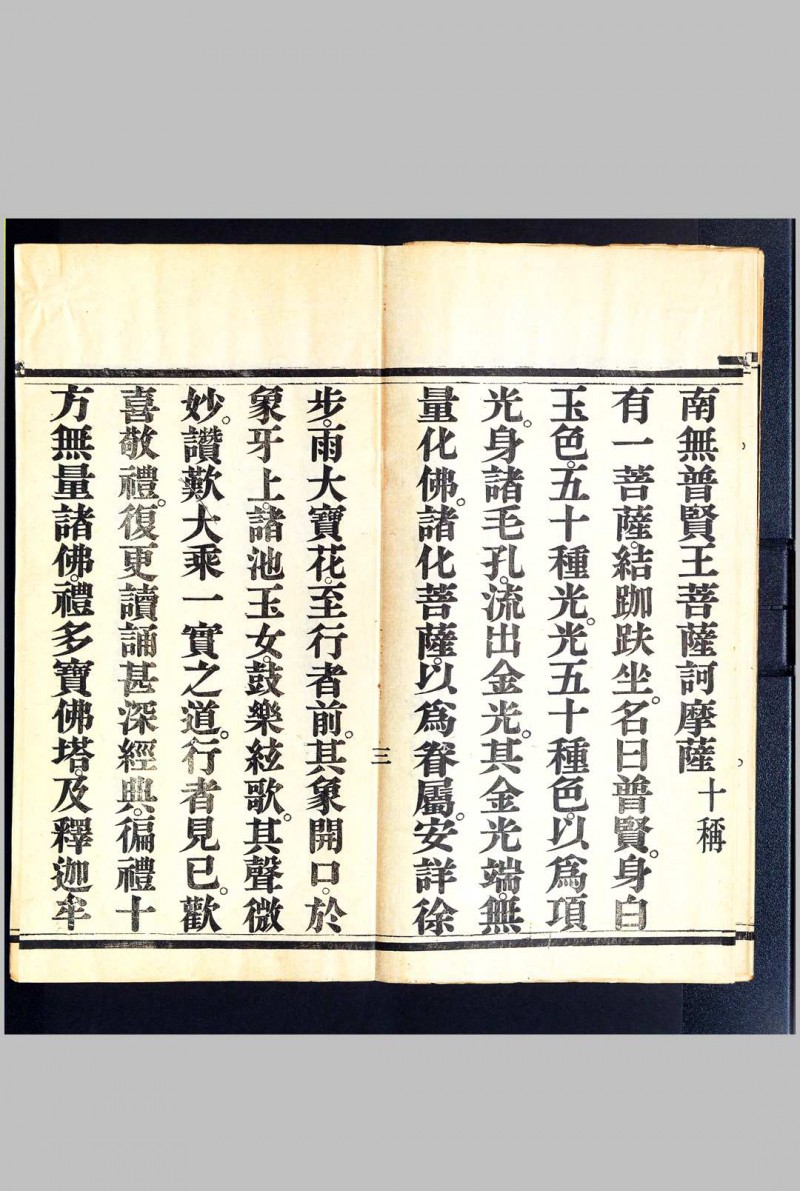 南無普賢王菩薩訶摩薩十稱
有一菩薩。結跏趺坐。名曰普賢。身白
玉色。五十種光。光五十種色。以爲項
光。身諸毛孔。流出金光。其金光端。無
量化佛。諸化菩薩。以爲眷屬。安詳徐
三
步。雨大寶花。至行者前。其象開口。於
象牙上。諸池玉女。鼓樂絃歌。其聲微
妙。讚歎大乘一實之道。行者見已。歡
喜敬禮。復更讀誦甚深經典。徧禮十
方無量諸佛。禮多寶佛塔。及釋迦牟